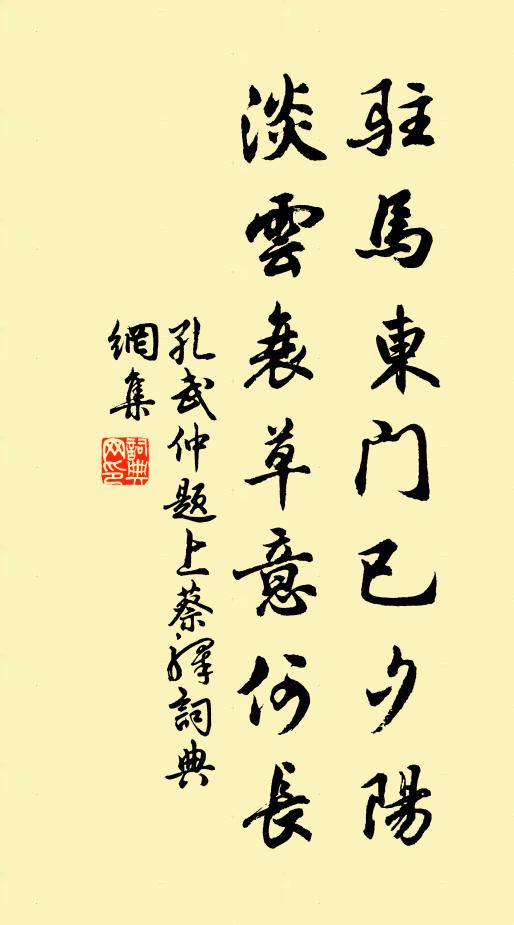 駐馬東門已夕陽
淡雲衰草意何長
孔武仲題上蔡驛詞典
網集
詞典網印